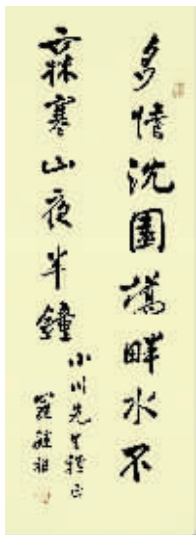 多情沈園橋畔水不
寐寒山夜半鐘
小川先生雅正
羅繼祖